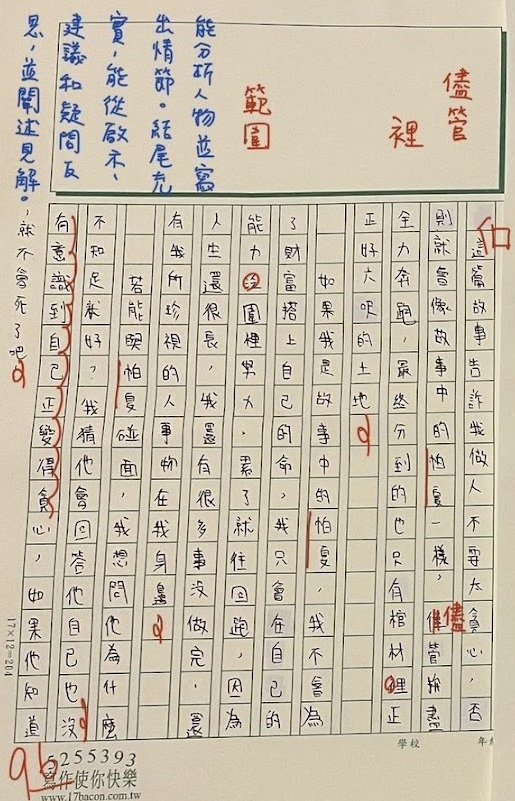 儘管
裡
範圍
能分析人物並寫
出情節。結尾充
實，能從啟示、
建議和疑問反
思，並闡述見解。
這篇故事告訴我做人不要太貪心，否
則就會像故事中的怕夏一樣，僅管拚盡
儘
全力奔跑，最終分到的也只有棺材裡正
正好六呎的土地。
如果我是故事中的怕夏，我不會為
了財富搭上自己的命，我只會在自己的
能力氾圍裡努力，累了就往回跑，因為
人生還很長，我還有很多事沒做完，還
有我所珍視的人事物在我身邊。
若能與怕夏碰面，我想問他為什麼
不知足就好？我猜他會回答他自己也沒
有意識到自己正變得貪心，如果他知道
，就不會死了吧。
17×12=204
學校
年級
95
5255393
寫作使你快樂
www.17bacon.com.tw